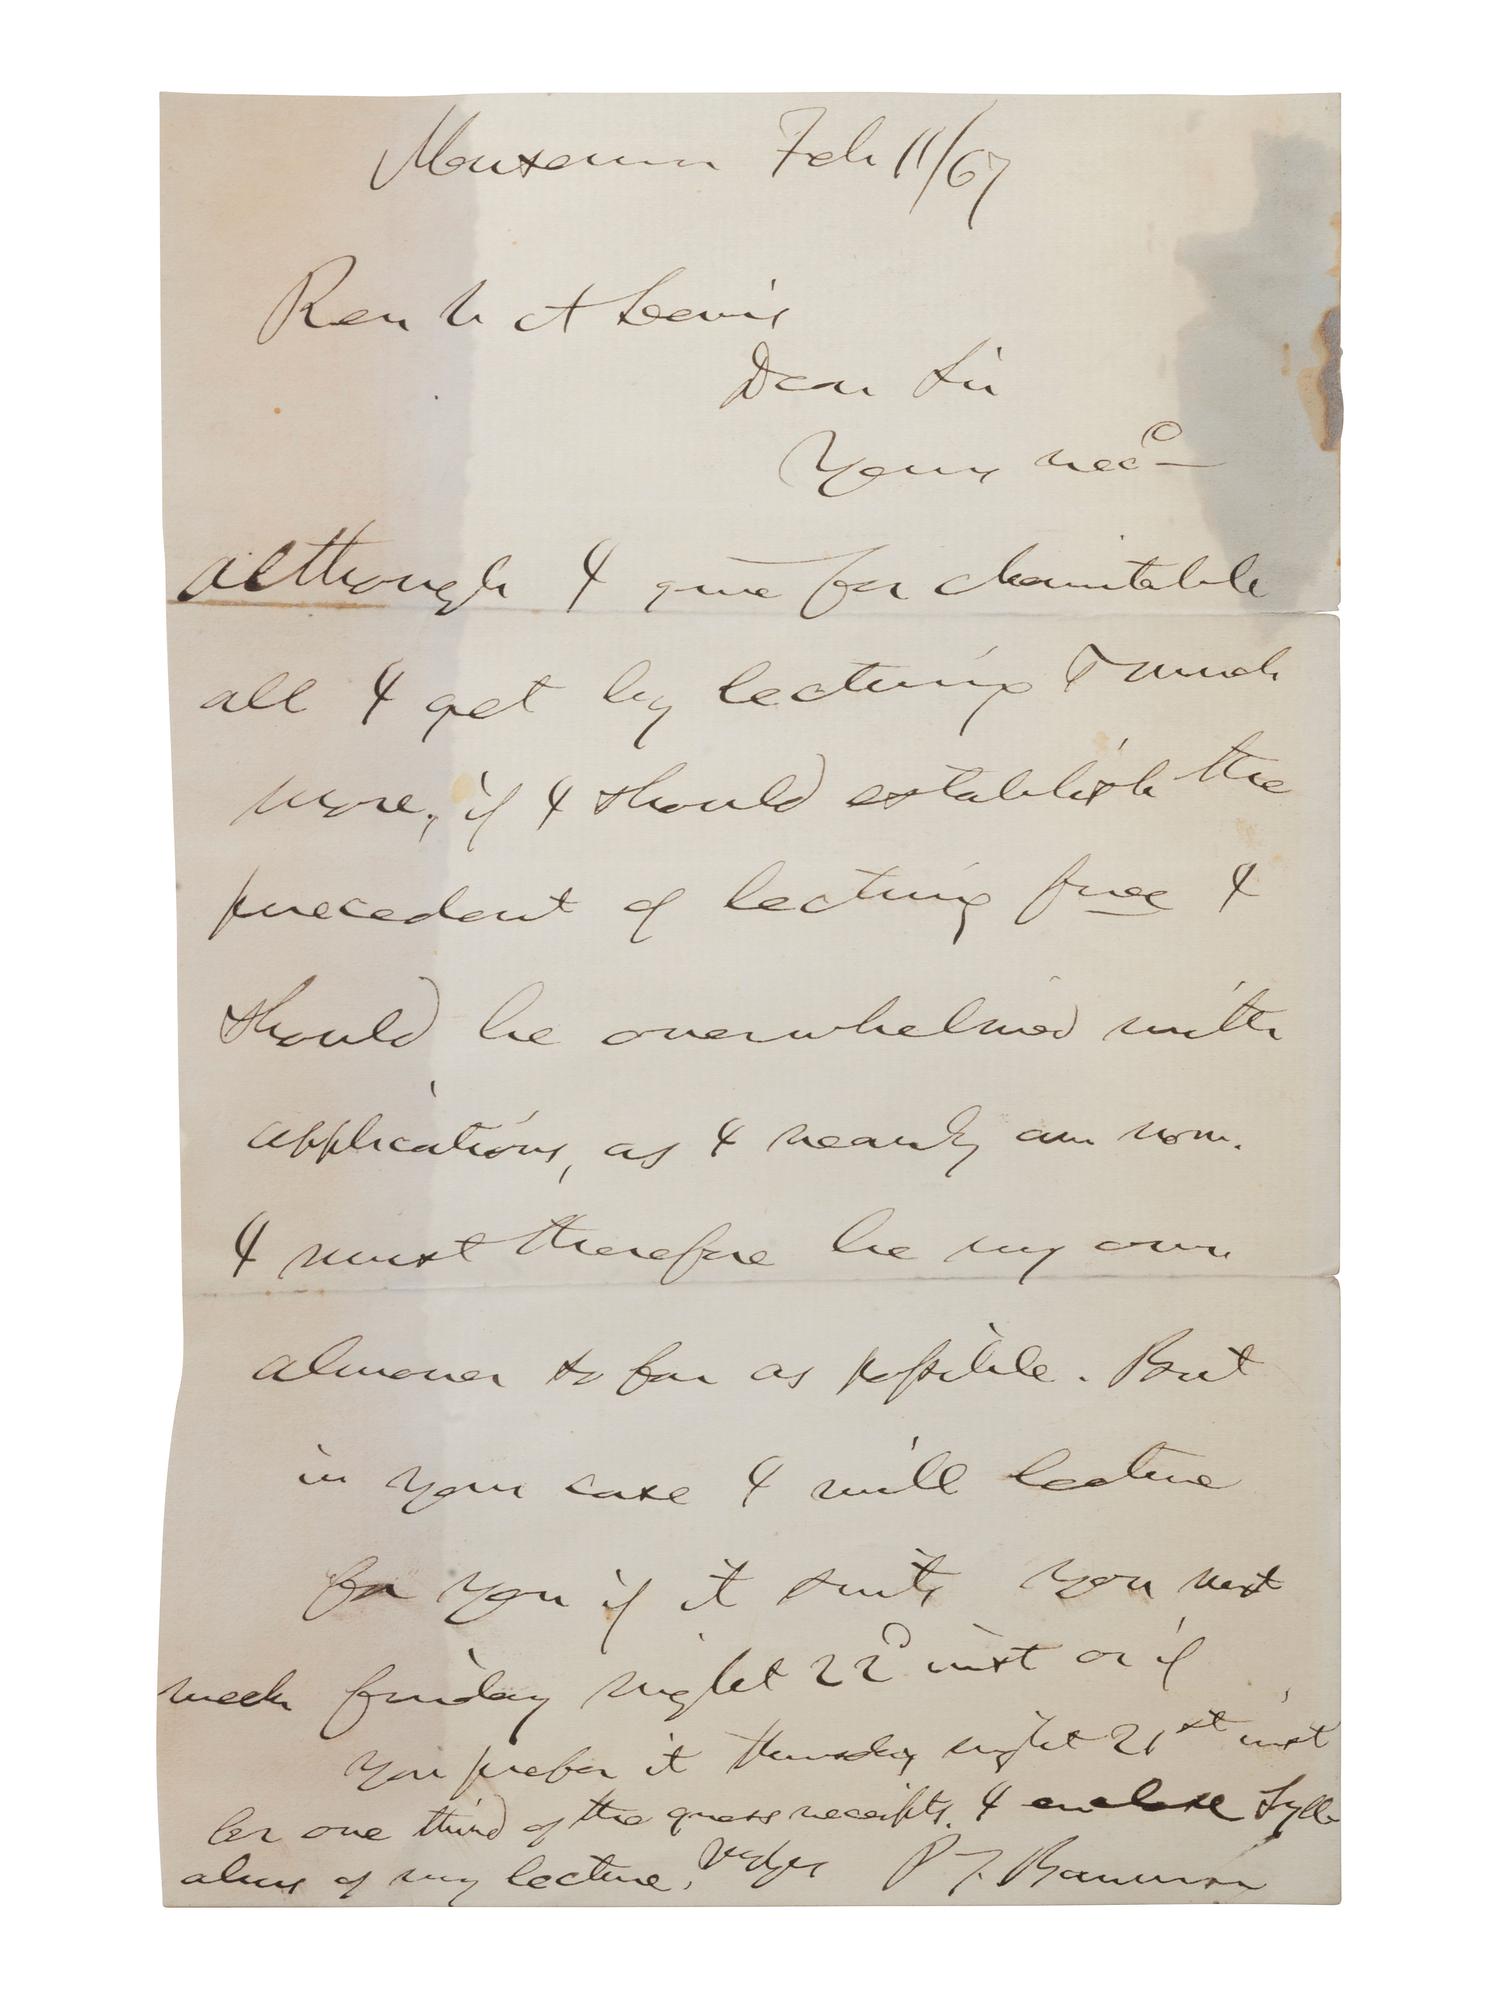 Museum Feb 11/67
Rev A Lewis
Dear Sir
Yours recd —
although I give for charitable
all I get by lecturing & much
more, if I should establish the
precedent of lecturing free I
should be overwhelmed with
applications, as I nearly am now.
I must therefore be my own
almoner so far as possible. But
in your case I will lecture
for you if it suits you next
week friday night 22d inst or if
you prefer it thursday night 21st inst
for one third of the gross receipts. I enclose Sylla
abus of my lecture. P. T. Barnum